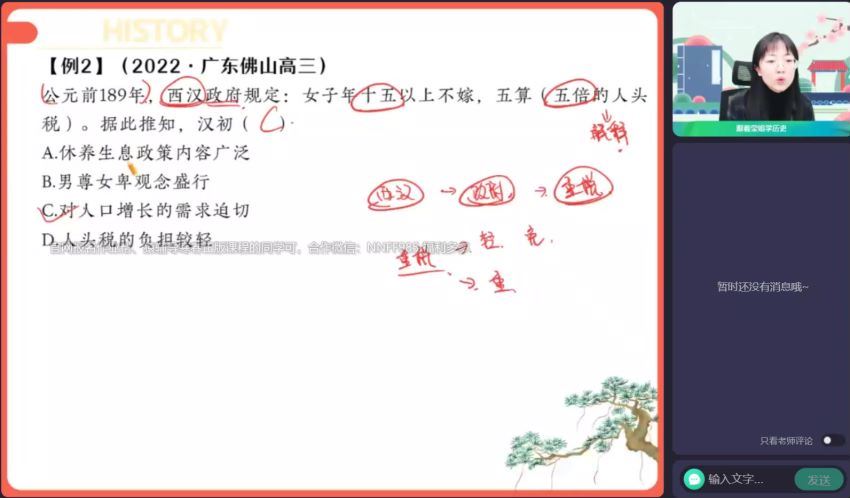 HISTORY
【例2】（2022·广东佛山高三）
公元前189年，西汉政府规定：女子年十五以上不嫁，五算（五倍的人头
税）。据此推知，汉初（ C ）
解释
A.休养生息政策内容广泛
B.男尊女卑观念盛行
西汉 → 政府 → 重税
C.对人口增长的需求迫切
D.人头税的负担较轻
重税 → 轻. 免.
→ 重
跟着宝姐学历史
暂时还没有消息哦~
只看老师评论
输入文字...
发送